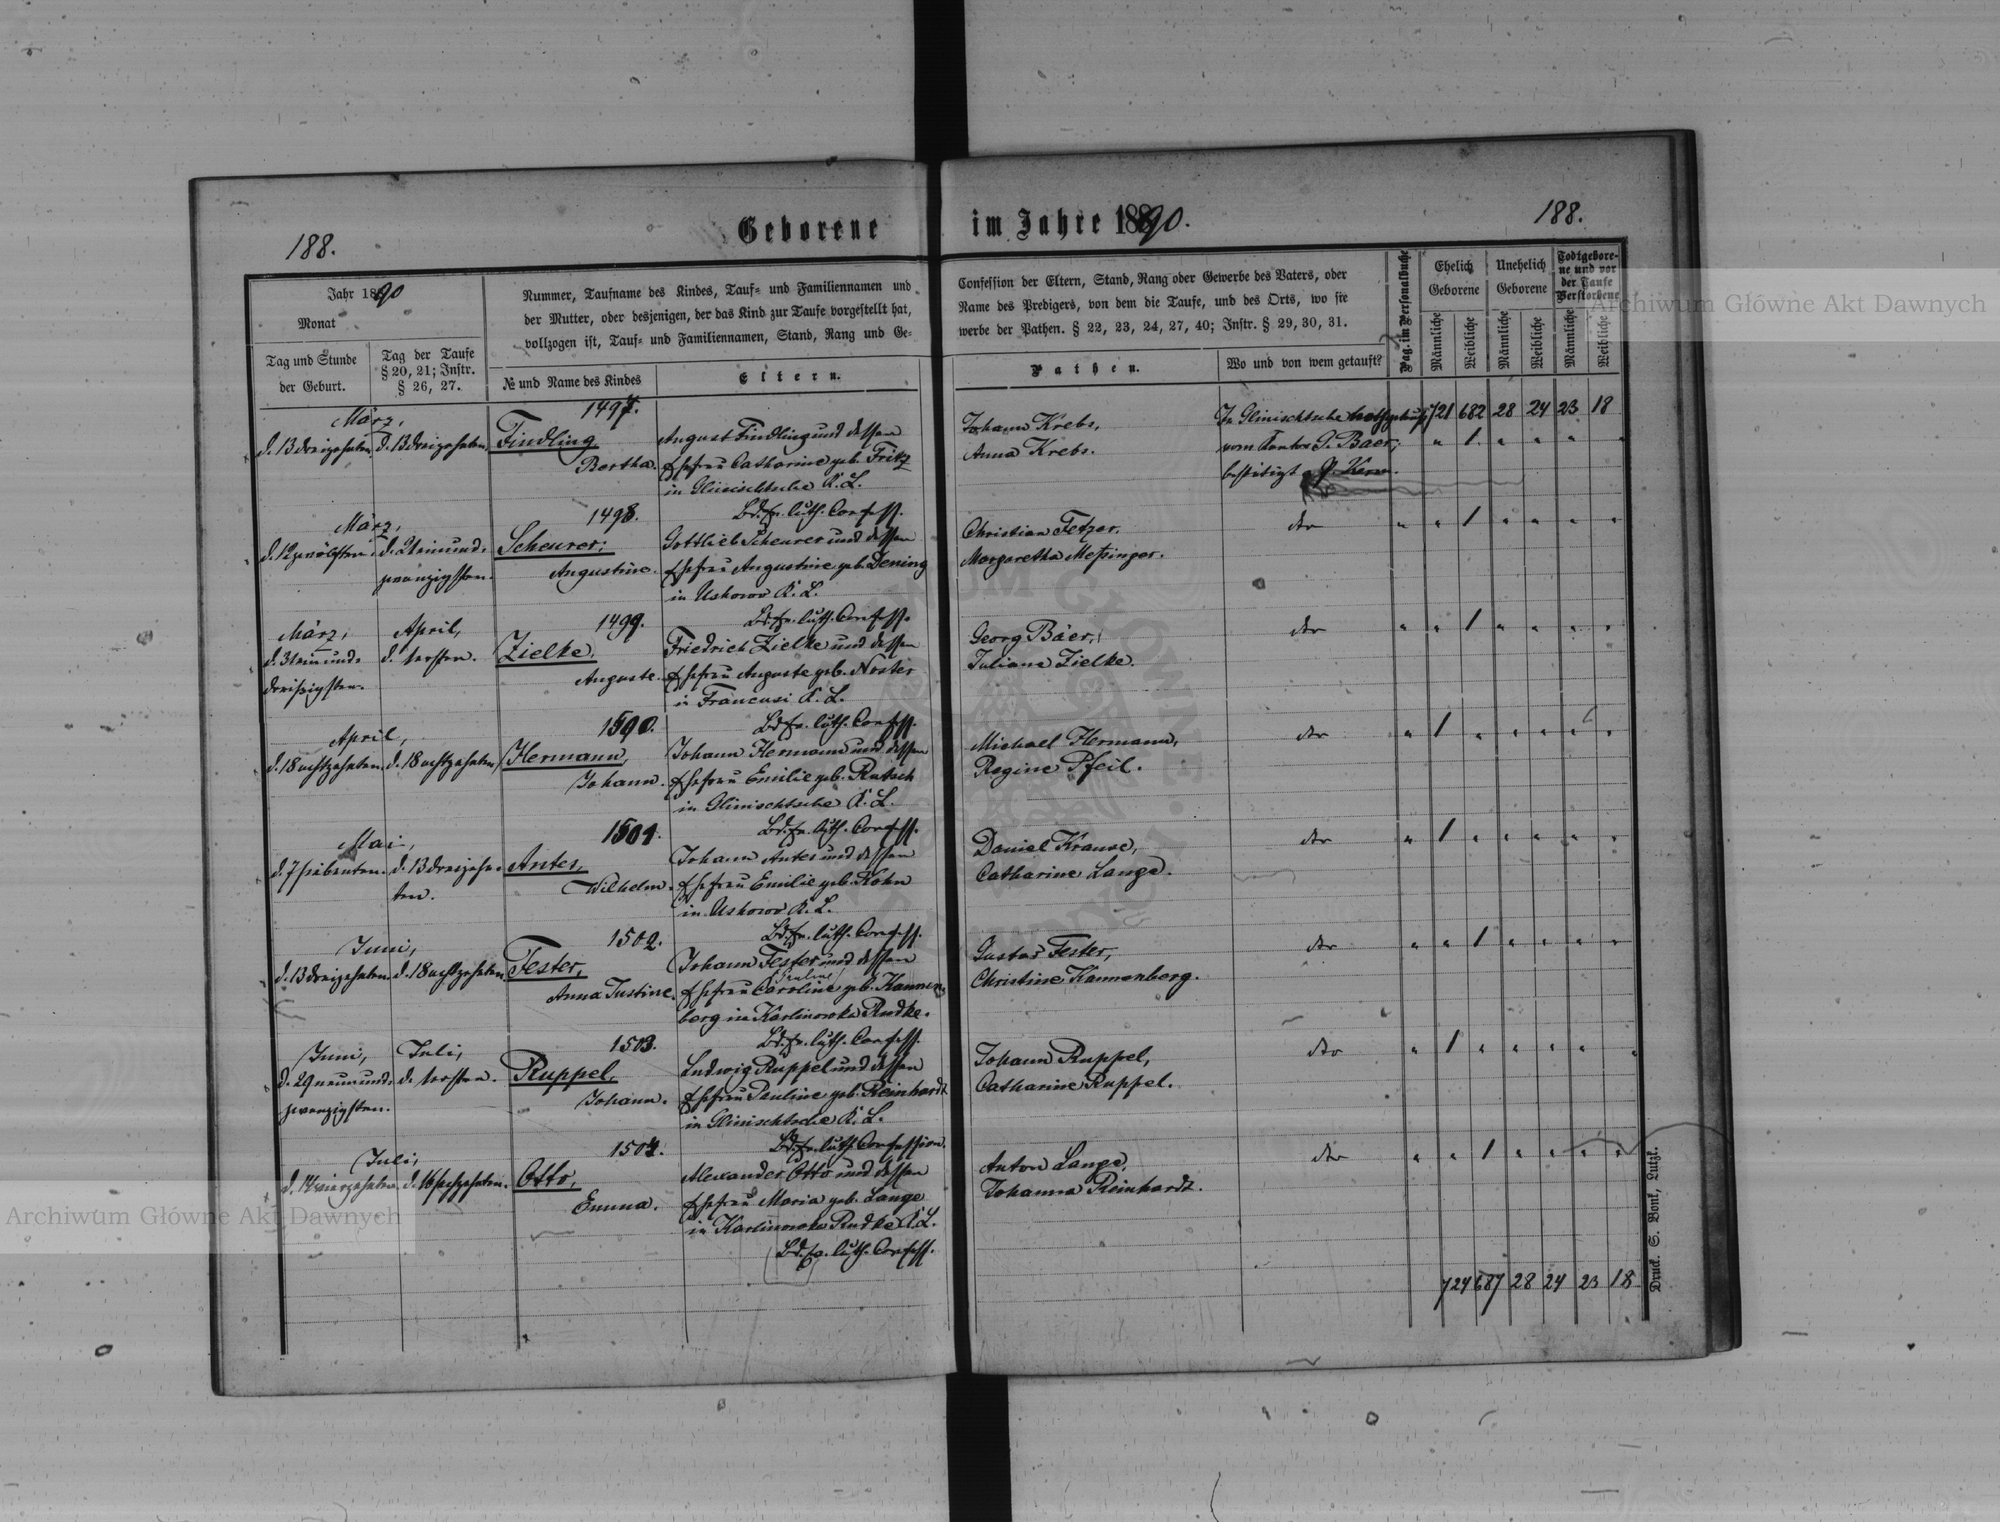 188.
Geborene
im Jahre 1890.
188.
Jahr 1890
Monat
Tag und Stunde
der Geburt.
Tag der Taufe
§ 20, 21; Instr.
§ 26, 27.
Nummer, Taufname des Kindes, Tauf- und Familiennamen und
der Mutter, oder desjenigen, der das Kind zur Taufe vorgestellt hat,
vollzogen ist, Tauf- und Familiennamen, Stand, Rang und Ge-
№ und Name des Kindes
Eltern.
Confession der Eltern, Stand, Rang oder Gewerbe des Vaters, oder
Name des Predigers, von dem die Taufe, und des Orts, wo sie
werbe der Pathen. § 22, 23, 24, 27, 40; Instr. § 29, 30, 31.
Pathen.
Wo und von wem getauft?
Pag. im Personalbuche
Ehelich
Geborene
Unehelich
Geborene
Todtgebore-
ne und vor
der Taufe
Verstorbene
Männliche
Weibliche
Männliche
Weibliche
Männliche
Weibliche
März,
d. 13 dreizehnten.
d. 13 dreizehnten.
1497.
Findling
Bertha.
August Findling und dessen
Ehefrau Catharine geb. Fritz
in Glinischtsche K. L.
Bd. ev. luth. Confess.
Johann Krebs,
Anna Krebs.
In Glinischtsche
vom Kantor G. Baer,
bestätigt
721 682 28 24 23 18
" 1 " " " "
März,
d. 12 zwölften.
d. 21 einund-
zwanzigsten.
1498.
Scheurer,
Augustine.
Gottlieb Scheurer und dessen
Ehefrau Augustine geb. Dening
in Ushowo K. L.
Bd. ev. luth. Confess.
Christian Fetzer,
Margaretha Messinger.
dto
" " 1 " " " "
März,
d. 31 einund-
dreißigsten.
April,
d. 1 ersten.
1499.
Zielke,
Auguste.
Friedrich Zielke und dessen
Ehefrau Auguste geb. Noster
in Francusi K. L.
Bd. ev. luth. Confess.
Georg Bäer,
Juliane Zielke.
dto
" " 1 " " " "
April,
d. 18 achtzehnten.
d. 18 achtzehnten.
1500.
Hermann,
Johann.
Johann Hermann und dessen
Ehefrau Emilie geb. Rutsch
in Glinischtsche K. L.
Bd. ev. luth. Confess.
Michael Hermann,
Regine Pfeil.
dto
" 1 " " " " "
Mai,
d. 7 siebenten.
d. 13 dreizehn-
ten.
1501.
Antes,
Wilhelm.
Johann Antes und dessen
Ehefrau Emilie geb. Kohn
in Ushowo K. L.
Bd. ev. luth. Confess.
Daniel Krause,
Catharine Lange.
dto
" 1 " " " " "
Juni,
d. 13 dreizehnten.
d. 18 achtzehnten.
1502.
Fester,
Anna Justine.
Johann Fester und dessen
Ehefrau Caroline geb. Kannen-
berg in Karlinowka Rudke.
Bd. ev. luth. Confess.
Gustav Fester,
Christine Kannenberg.
dto
" " 1 " " " "
Juni,
d. 29 neunund-
zwanzigsten.
Juli,
d. 1 ersten.
1503.
Ruppel,
Johann.
Ludwig Ruppel und dessen
Ehefrau Pauline geb. Reinhardt
in Glinischtsche K. L.
Bd. ev. luth. Confession.
Johann Ruppel,
Catharine Ruppel.
dto
" 1 " " " " "
Juli,
d. 14 vierzehnten.
d. 16 sechzehnten.
1504.
Otto,
Emma.
Alexander Otto und dessen
Ehefrau Maria geb. Lange
in Karlinowka Rudke K. L.
Bd. ev. luth. Confess.
Anton Lange,
Johanna Reinhardt.
dto
" " 1 " " " "
724 687 28 24 23 18
Druck. S. Bont, Lutzk.
Archiwum Główne Akt Dawnych
Archiwum Główne Akt Dawnych